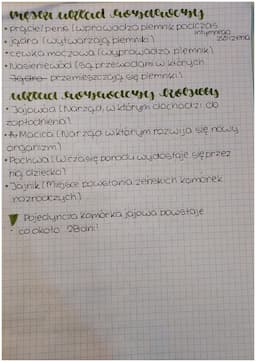 męski układ rozrodczy
• prącie/penis (wprowadza plemniki podczas
intymnego
zbliżenia
• jądra (wytwarzają plemniki)
• cewka moczowa (wyprowadza plemniki)
• Nasieniewód (Są przewodami w których
przemieszczają się plemniki)
układ rozrodczy żeński
• Jajowód (Narząd, w którym dochodzi do
zapłodnienia)
• Macica (Narząd w którym rozwija się nowy
organizm)
• Pochwa (W czasie porodu wydostaje się przez
nią dziecko)
• Jajnik (Miejsce powstania żeńskich komórek
rozrodczych)
Pojedyncza komórka jajowa powstaje
co około 28 dni!